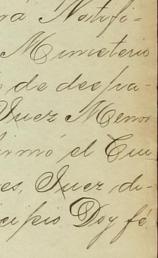 rá Notifi-
Ministerio
de despa-
Juez Menor
firmó el Ciu
es, Juez de-
icipio Doy fé